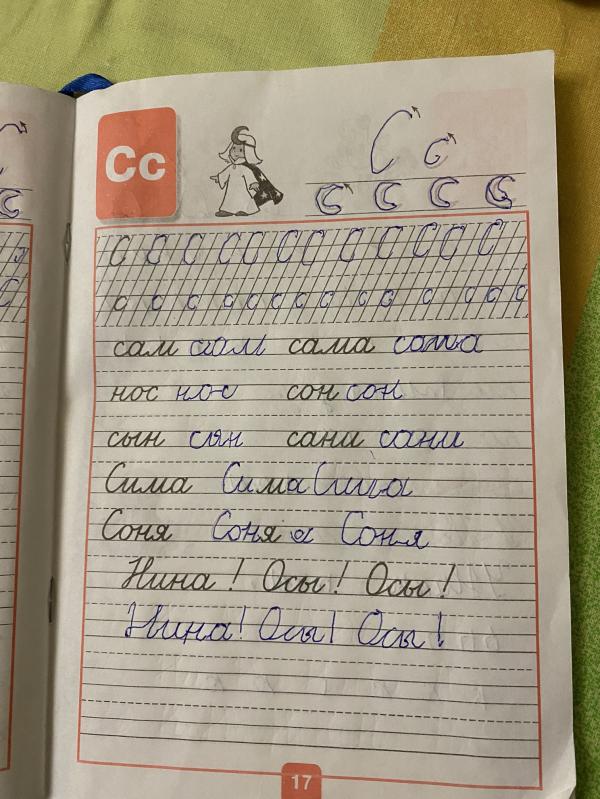 Сс
С с
с с с с
С С С С С С С С С С С С
с с с с с с с с с с с с с с
сам сам сама сама
нос нос сон сон
сын сын сани сани
Сима Сима Сима
Соня Соня я Соня
Нина! Осы! Осы!
Нина! Осы! Осы!
17